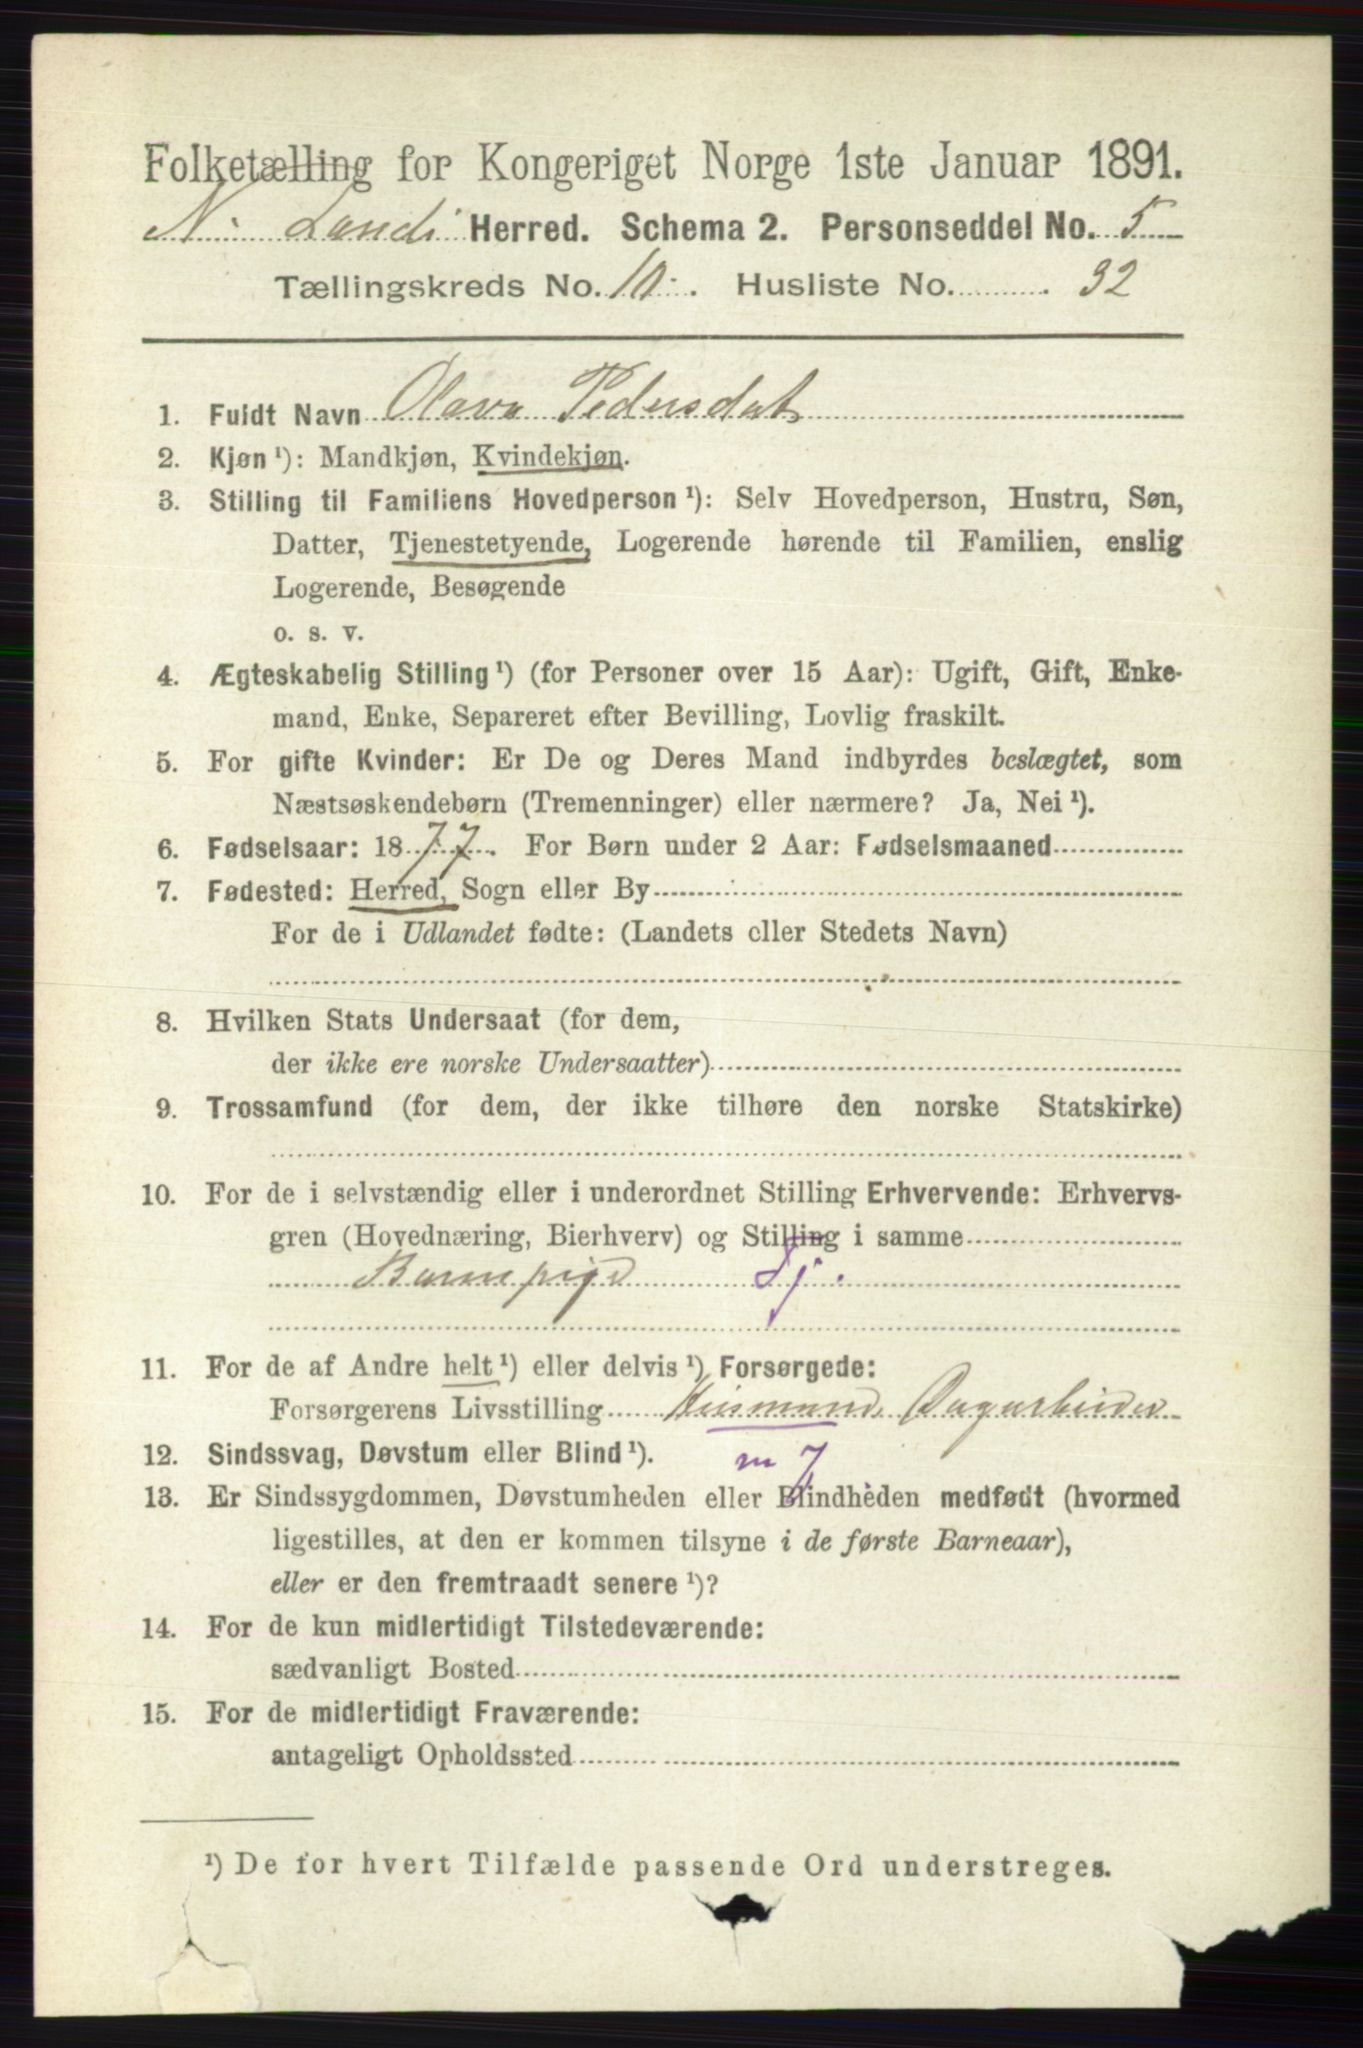 Folketælling for Kongeriget Norge 1ste Januar 1891.
N. Land Herred. Schema 2. Personseddel No. 5
Tællingskreds No. 10. Husliste No. 32
1. Fuldt Navn Olava Pedersdat
2. Kjøn¹): Mandkjøn, Kvindekjøn.
3. Stilling til Familiens Hovedperson¹): Selv Hovedperson, Hustru, Søn,
Datter, Tjenestetyende, Logerende hørende til Familien, enslig
Logerende, Besøgende
o. s. v.
4. Ægteskabelig Stilling¹) (for Personer over 15 Aar): Ugift, Gift, Enke-
mand, Enke, Separeret efter Bevilling, Lovlig fraskilt.
5. For gifte Kvinder: Er De og Deres Mand indbyrdes beslægtet, som
Næstsøskendebørn (Tremenninger) eller nærmere? Ja, Nei¹).
6. Fødselsaar: 1877. For Børn under 2 Aar: Fødselsmaaned
7. Fødested: Herred, Sogn eller By
For de i Udlandet fødte: (Landets eller Stedets Navn)
8. Hvilken Stats Undersaat (for dem,
der ikke ere norske Undersaatter)
9. Trossamfund (for dem, der ikke tilhøre den norske Statskirke)
10. For de i selvstændig eller i underordnet Stilling Erhvervende: Erhvervs-
gren (Hovednæring, Bierhverv) og Stilling i samme
Barnepige Tj.
11. For de af Andre helt¹) eller delvis¹) Forsørgede:
Forsørgerens Livsstilling Husmand, Dagarbeider
12. Sindssvag, Døvstum eller Blind¹). m J
13. Er Sindssygdommen, Døvstumheden eller Blindheden medfødt (hvormed
ligestilles, at den er kommen tilsyne i de første Barneaar),
eller er den fremtraadt senere¹)?
14. For de kun midlertidigt Tilstedeværende:
sædvanligt Bosted
15. For de midlertidigt Fraværende:
antageligt Opholdssted
¹) De for hvert Tilfælde passende Ord understreges.